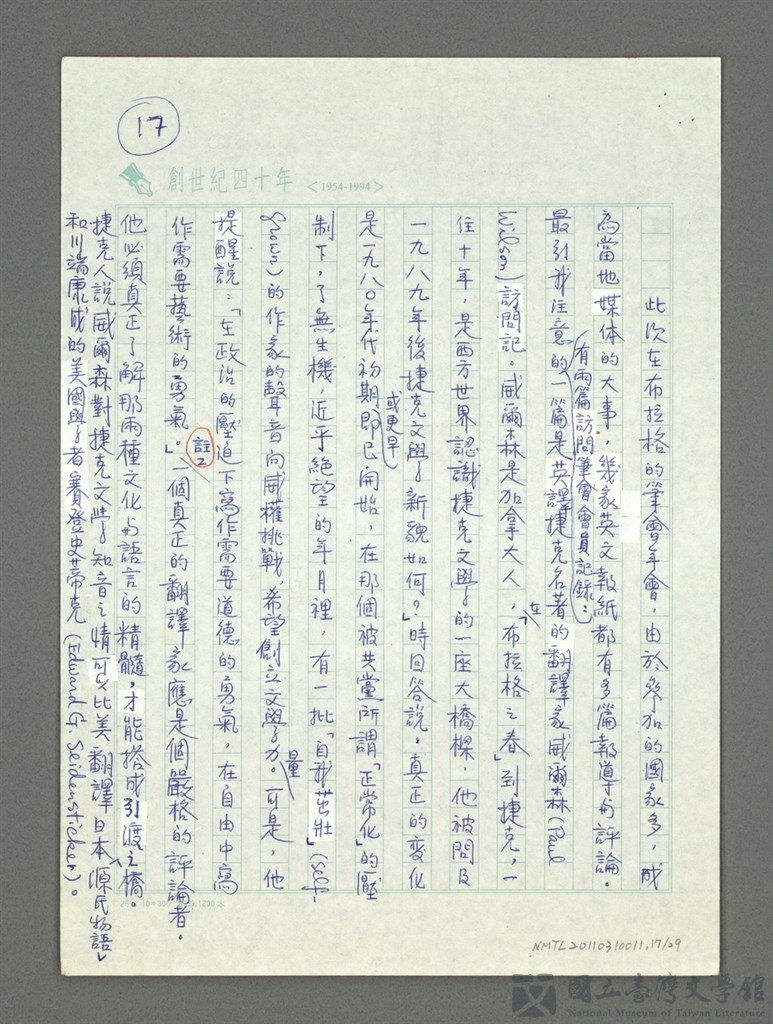 17
創世紀四十年 <1954-1994>
此次在布拉格的筆會年會，由於參加的國家多，成
為當地媒体的大事，幾家英文報紙都有多篇報導与評論。
有兩篇訪問筆會會員記錄：
最引我注意的一篇是英譯捷克名著的翻譯家威爾森(Paul
Wilson)訪問記。威爾森是加拿大人，在「布拉格之春」到捷克，一
住十年，是西方世界認識捷克文學的一座大橋樑，他被問及
一九八九年後捷克文學新貌如何？」時回答說。真正的變化
是一九八〇年代初期或更早即已開始，在那個被共黨所謂「正常化」的壓
制下，了無生機，近乎絕望的年月裡，有一批「自我茁壯」(Self-
Grown)的作家的聲音向威權挑戰，希望創立文學力量。可是，他
提醒說：「在政治的壓迫下寫作需要道德的勇氣，在自由中寫
作需要藝術的勇氣。」註2一個真正的翻譯家應是個嚴格的評論者。
他必須真正了解那兩種文化与語言的精髓，才能搭成引渡之橋。
捷克人說威爾森對捷克文學知音之情可以比美翻譯日本「源氏物語」
和川端康成的美國學者賽登史蒂克(Edward G. Seidensticker)。
NMTL20110310011,17/29
國立臺灣文學館
National Museum of Taiwan Literature